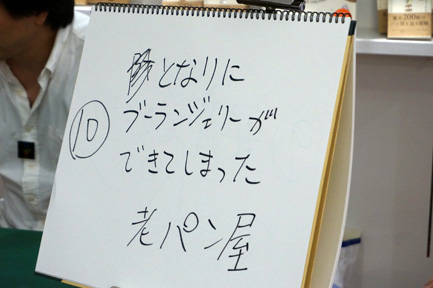 となりに
⑩
ブーランジェリーが
できてしまった
老パン屋